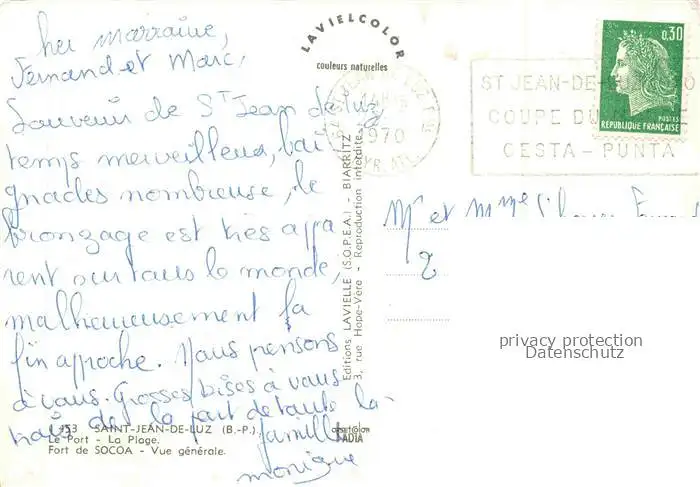 her marraine,
Fernand et Marc,
Souvenir de St Jean de luz
temps merveilleux, bai
gnades nombreuse, le
bronzage est très appa
rent sur tous le monde,
malheureusement la
fin approche. Nous pensons
à vous. Grosses bises à vous
trois de la part de toute la
famille
monique
LAVIELCOLOR
couleurs naturelles
Editions LAVIELLE (S.O.P.E.A.) - BIARRITZ
3, rue Hope-Vère - Reproduction interdite
1970
ST JEAN-DE-
COUPE DU
CESTA-PUNTA
0,30
POSTES
REPUBLIQUE FRANÇAISE
Mr et Mme
2
privacy protection
Datenschutz
153 SAINT-JEAN-DE-LUZ (B.-P.)
Le Port - La Plage.
Fort de SOCOA - Vue générale.